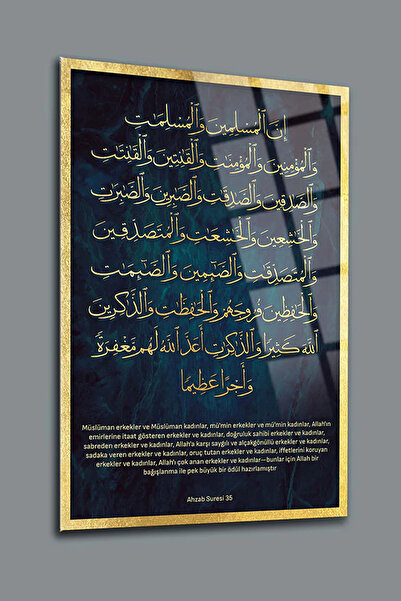 إِنَّ ٱلْمُسْلِمِينَ وَٱلْمُسْلِمَٰتِ
وَٱلْمُؤْمِنِينَ وَٱلْمُؤْمِنَٰتِ وَٱلْقَٰنِتِينَ وَٱلْقَٰنِتَٰتِ
وَٱلصَّٰدِقِينَ وَٱلصَّٰدِقَٰتِ وَٱلصَّٰبِرِينَ وَٱلصَّٰبِرَٰتِ
وَٱلْخَٰشِعِينَ وَٱلْخَٰشِعَٰتِ وَٱلْمُتَصَدِّقِينَ
وَٱلْمُتَصَدِّقَٰتِ وَٱلصَّٰٓئِمِينَ وَٱلصَّٰٓئِمَٰتِ
وَٱلْحَٰفِظِينَ فُرُوجَهُمْ وَٱلْحَٰفِظَٰتِ وَٱلذَّٰكِرِينَ
ٱللَّهَ كَثِيرًا وَٱلذَّٰكِرَٰتِ أَعَدَّ ٱللَّهُ لَهُم مَّغْفِرَةً
وَأَجْرًا عَظِيمًا
Müslüman erkekler ve Müslüman kadınlar, mü'min erkekler ve mü'min kadınlar, Allah'ın
emirlerine itaat gösteren erkekler ve kadınlar, doğruluk sahibi erkekler ve kadınlar,
sabreden erkekler ve kadınlar, Allah'a karşı saygılı ve alçakgönüllü erkekler ve kadınlar,
sadaka veren erkekler ve kadınlar, oruç tutan erkekler ve kadınlar, iffetlerini koruyan
erkekler ve kadınlar, Allah'ı çok anan erkekler ve kadınlar—bunlar için Allah bir
bağışlanma ile pek büyük bir ödül hazırlamıştır
Ahzab Suresi 35